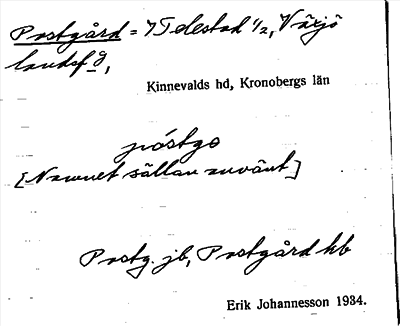 Postgård = 7 Telestad 1/2, Växjö
landsfg,
Kinnevalds hd, Kronobergs län
póstgo
[Namnet sällan använt]
Postg. jb, Postgård hb
Erik Johannesson 1934.